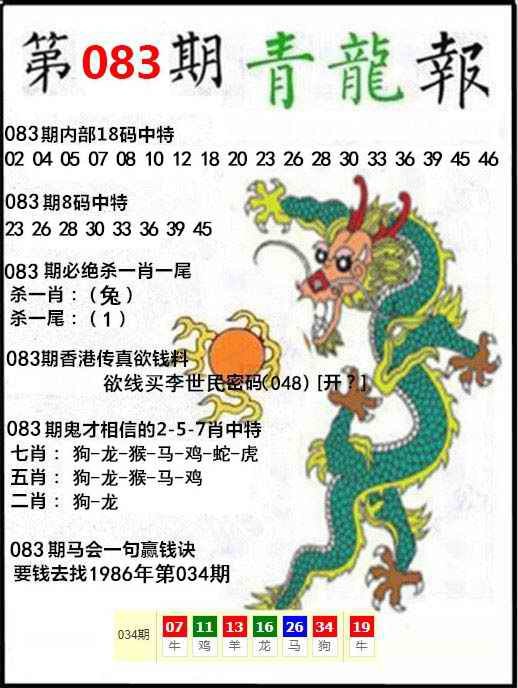 第083期 青龍報
083期内部18码中特
02 04 05 07 08 10 12 18 20 23 26 28 30 33 36 39 45 46
083期8码中特
23 26 28 30 33 36 39 45
083 期必绝杀一肖一尾
杀一肖：（兔）
杀一尾：（1）
083期香港传真欲钱料
欲线买李世民密码(048) [开？]
083期鬼才相信的2-5-7肖中特
七肖： 狗-龙-猴-马-鸡-蛇-虎
五肖： 狗-龙-猴-马-鸡
二肖： 狗-龙
083期马会一句赢钱诀
要钱去找1986年第034期
034期 07 11 13 16 26 34 19
牛 鸡 羊 龙 马 狗 牛